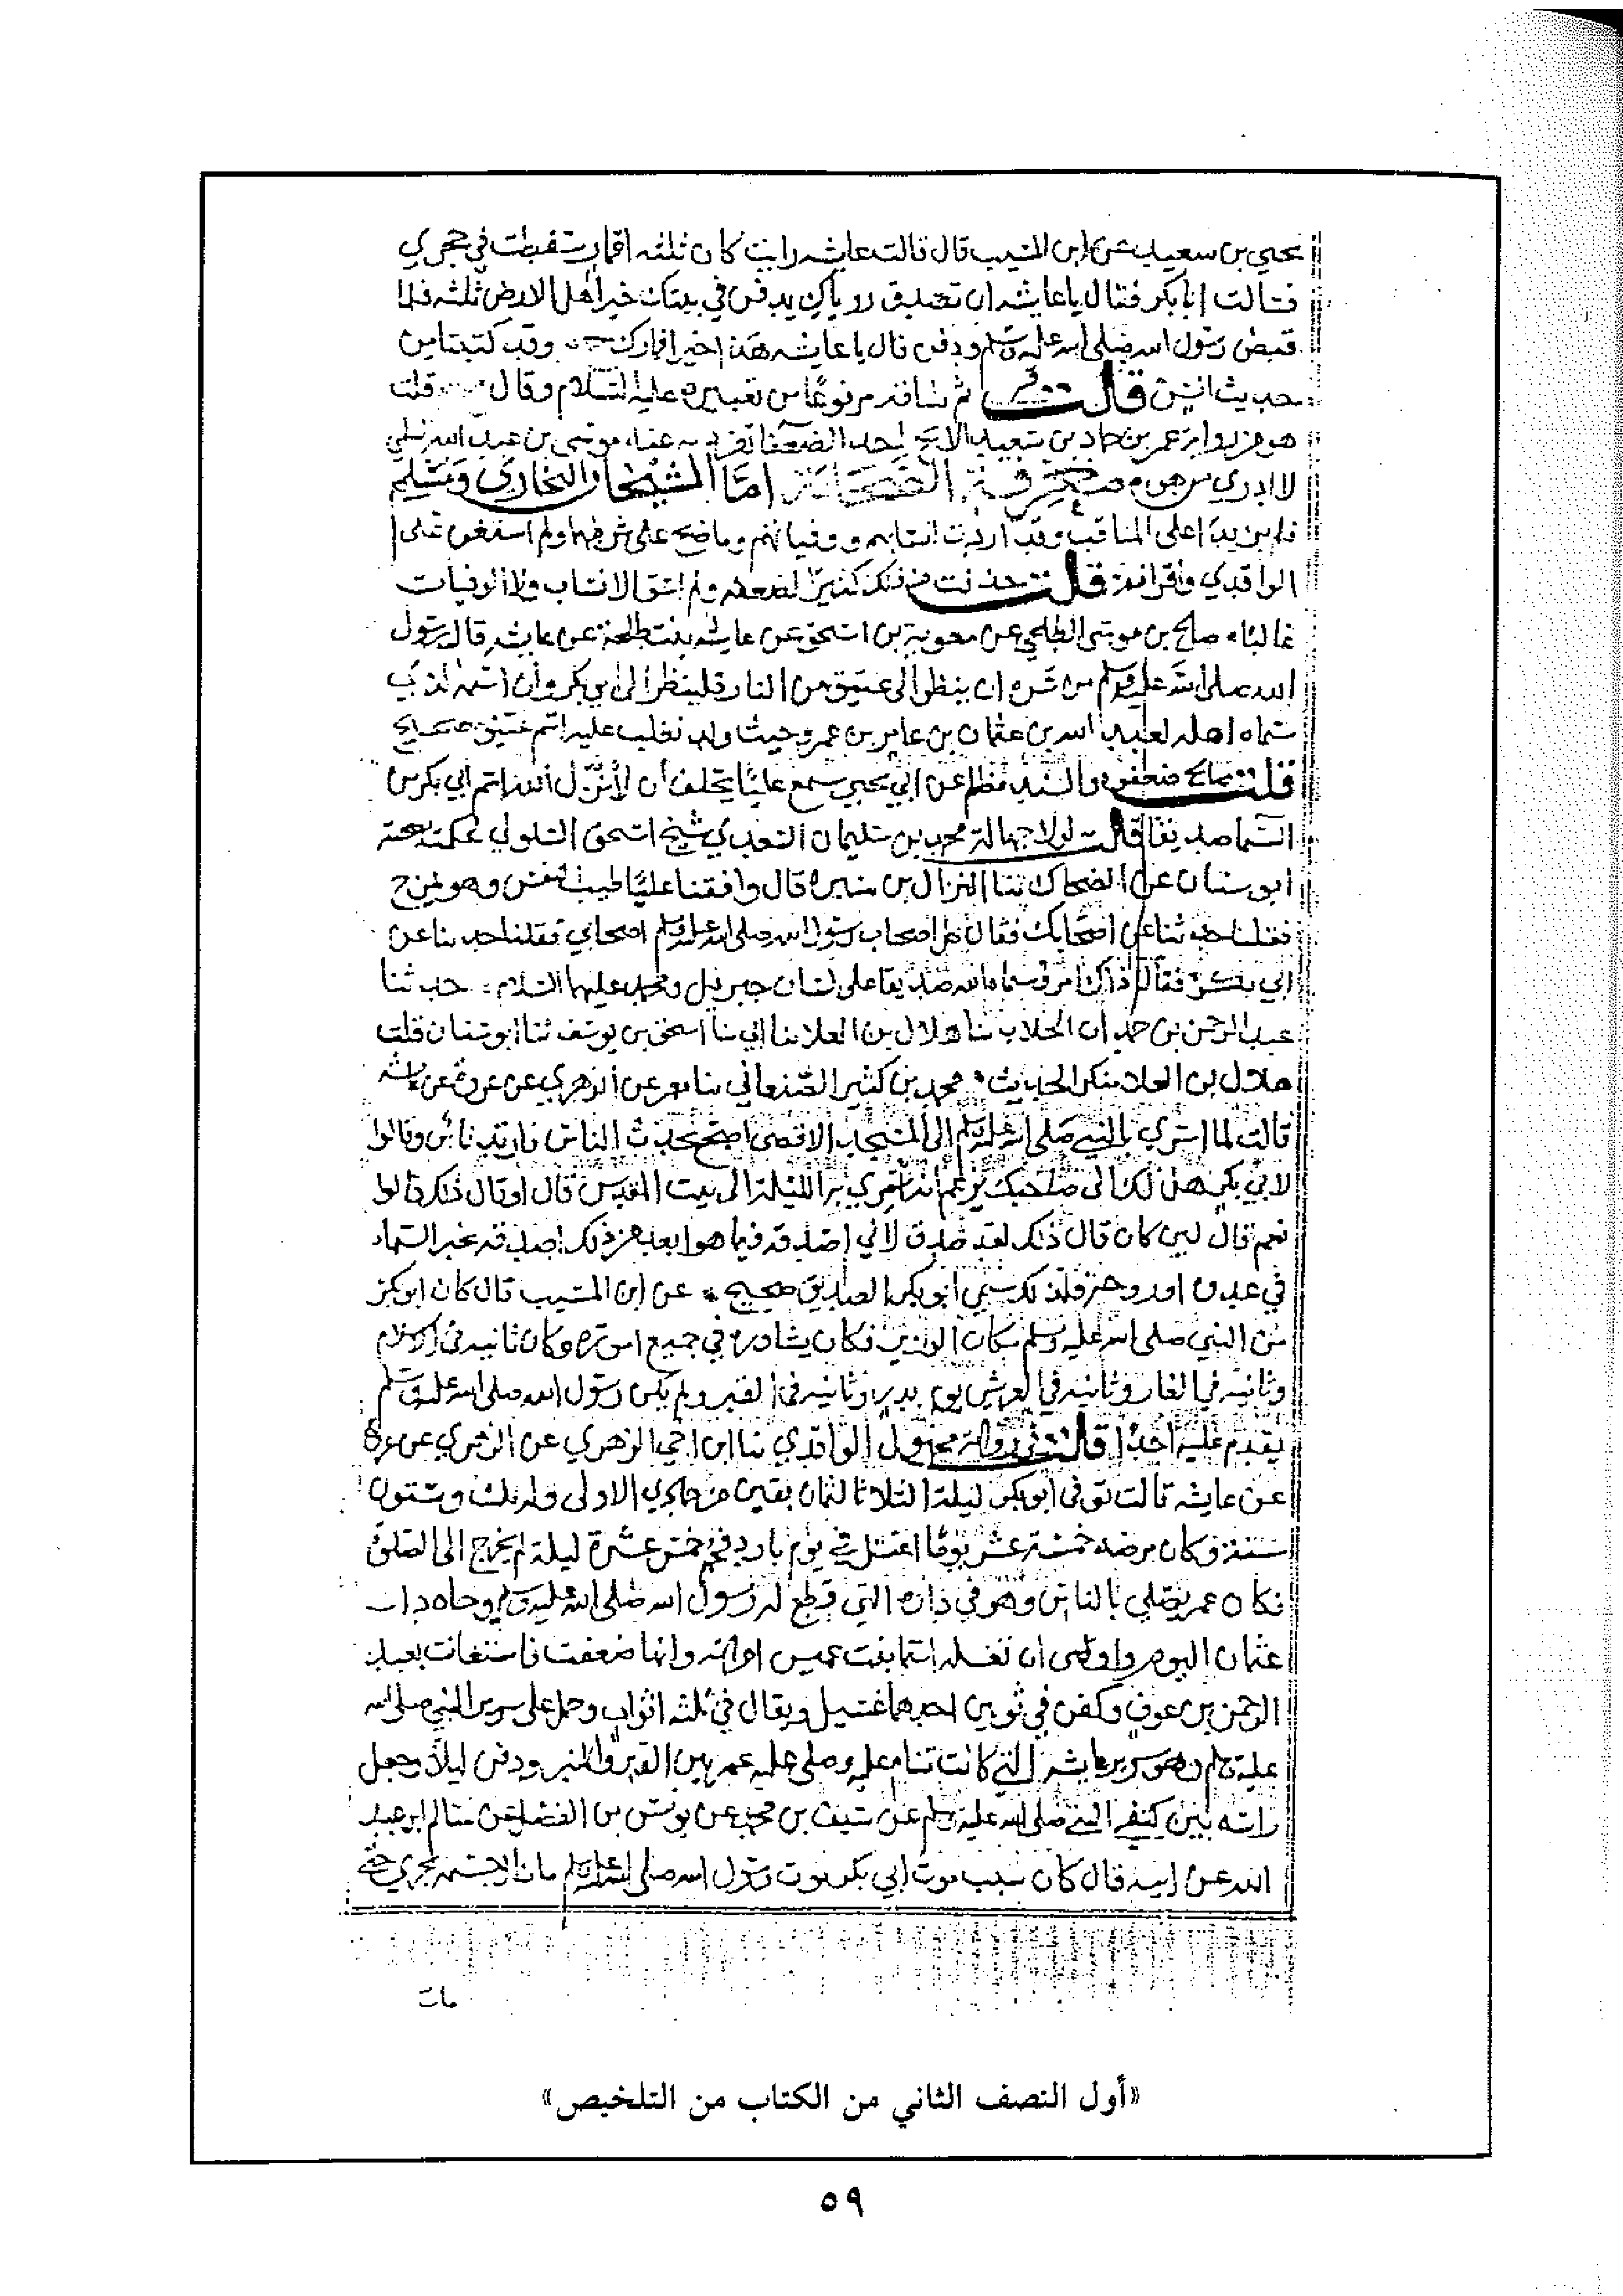 يحيى بن سعيد عن ابن المسيب قال قالت عايشه رايت كان ثلثه اقمار سقطت في حجري
فسالت ابا بكر فقال يا عايشه ان تصدق روياك يدفن في بيتك خير اهل الارض ثلثه فلما
قبض رسول الله صلى الله عليه وسلم ودفن قال يا عايشه هذا خير اقمارك وقد كتبناه من
حديث انس قلت ثم ساقه مرفوعا من تعبيره عليه السلام وقال قلت
هو من رواية عمر بن حماد بن سعيد الابح احد الضعفا تفرد به عنه موسى بن عبد الله السلمي
لا ادري من هو معرفة الصحابة اما الشيخان البخاري ومسلم
فلم يزيدا على المناقب وقد اردت انسابهم ووفياتهم وما صح على شرطهما ولم استغن على
الواقدي واقرانه قلت حذفت من ذلك كثيرا لضعفه ولم اسق الانساب ولا الوفيات
غالبا صالح بن موسى الطلحي عن معوية بن اسحق عن عايشه بنت طلحة عن عايشه قال رسول
الله صلى الله عليه وسلم من سره ان ينظر الى عتيق من النار فلينظر الى ابي بكر وان اسمه الذي
سماه اهله لعبد الله بن عثمان بن عامر بن عمرو حيث ولد فغلب عليه اسم عتيق صحيح
قلت صالح ضعفوه والسند مظلم عن ابي يحيى سمع عليا يحلف ان لأنزل الله اسم ابي بكر من
السما صديقا قلت لولا جهالة محمد بن سليمان السعدي شيخ اسحق السلولي لحكمت بصحته
ابو سنان عن الضحاك ثنا النزال بن سبره قال وافقنا عليا طيب النفس وهو يمزح
فقلنا حدثنا عن اصحابك فقال كل اصحاب رسول الله صلى الله عليه وسلم اصحابي فقلنا حدثنا عن
ابي بكر فقال ذاك امرؤ سماه الله صديقا على لسان جبريل ومحمد عليهما السلام حدثنا
عبد الرحمن بن حمدان الجلاب ثنا هلال بن العلا ثنا ابي ثنا اسحق بن يوسف ثنا ابو سنان قلت
هلال بن العلا منكر الحديث محمد بن كثير الصنعاني ثنا معمر عن الزهري عن عروة عن عايشه
قالت لما اسري بالنبي صلى الله عليه وسلم الى المسجد الاقصى اصبح يحدث الناس فارتد ناس وقالوا
لابي بكر هل لك الى صاحبك يزعم انه اسري به الليلة الى بيت المقدس قال اوقال ذلك قالوا
نعم قال لين كان قال ذلك لقد صدق لاني اصدقه فيما هو ابعد من ذلك اصدقه بخبر السماء
في غدوه او روحه فلذلك سمي ابو بكر الصديق صحيح عن ابن المسيب قال كان ابو بكر
من النبي صلى الله عليه وسلم مكان الوزير فكان يشاوره في جميع اموره وكان ثانيه في الاسلام
وثانيه في الغار وثانيه في العريش يوم بدر وثانيه في القبر ولم يكن رسول الله صلى الله عليه وسلم
يقدم عليه احدا قلت في رواته مجهول الواقدي ثنا ابن اخي الزهري عن الزهري عن عروة
عن عايشه قالت توفي ابو بكر ليلة الثلاثا لثمان بقين من جمادي الاولى وله ثلث وستون
سنه وكان مرضه خمسة عشر يوما اغتسل في يوم بارد فحم خمس عشرة ليلة لم يخرج الى الصلوة
فكان عمر يصلي بالناس وهو في داره التي قطع له رسول الله صلى الله عليه وسلم وجاه دار
عثمان اليوم واوصى ان تغسله اسما بنت عميس امراته وانها ضعفت فاستعانت بعبد
الرحمن بن عوف وكفن في ثوبين احدهما غسيل ويقال في ثلثه اثواب وحمل على سرير النبي صلى الله
عليه وسلم وهو سرير عايشه التي كانت تنام عليه وصلى عليه عمر بين القبر والمنبر ودفن ليلا وجعل
راسه بين كتفي النبي صلى الله عليه وسلم عن سيف بن محمد عن يونس بن الفضل عن سالم بن عبد
الله عن ابيه قال كان سبب موت ابي بكر موت رسول الله صلى الله عليه وسلم مازال جسمه يجري حتى
مات
«أول النصف الثاني من الكتاب من التلخيص»
٥٩